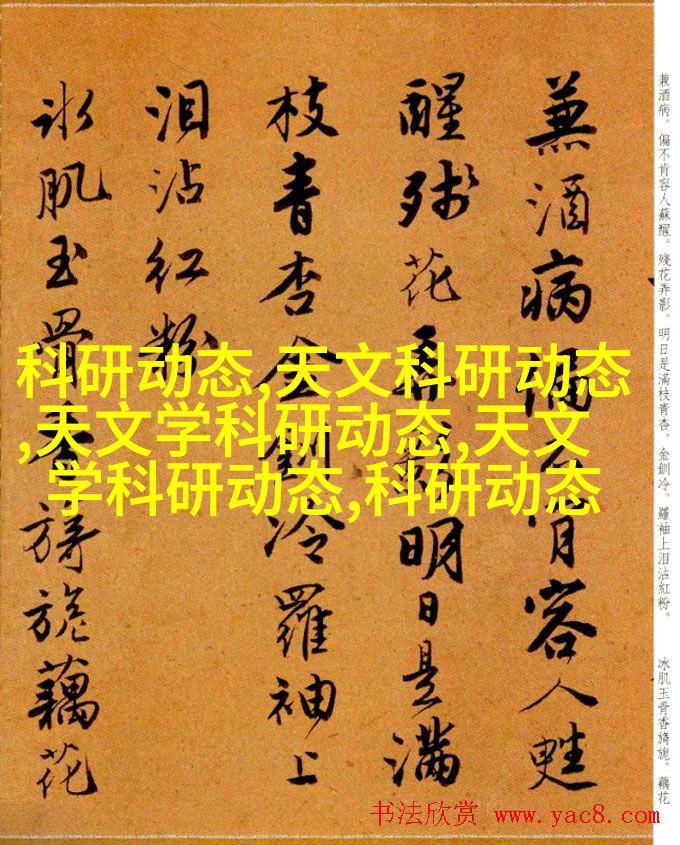 兼酒病。偏不肯容人蘇醒。殘花弄影。明日是滿枝青杏。金釧冷。羅袖上泪沾紅粉。
冰肌玉骨香旖旎。藕花
兼酒病偏不肯容人甦
醒殘花弄影明日是滿
枝青杏金釧冷羅袖上
泪沾紅粉
冰肌玉骨香旖旎藕花
科研动态,天文科研动态
,天文学科研动态,天文
学科研动态,科研动态
书法欣赏 www.yac8.com